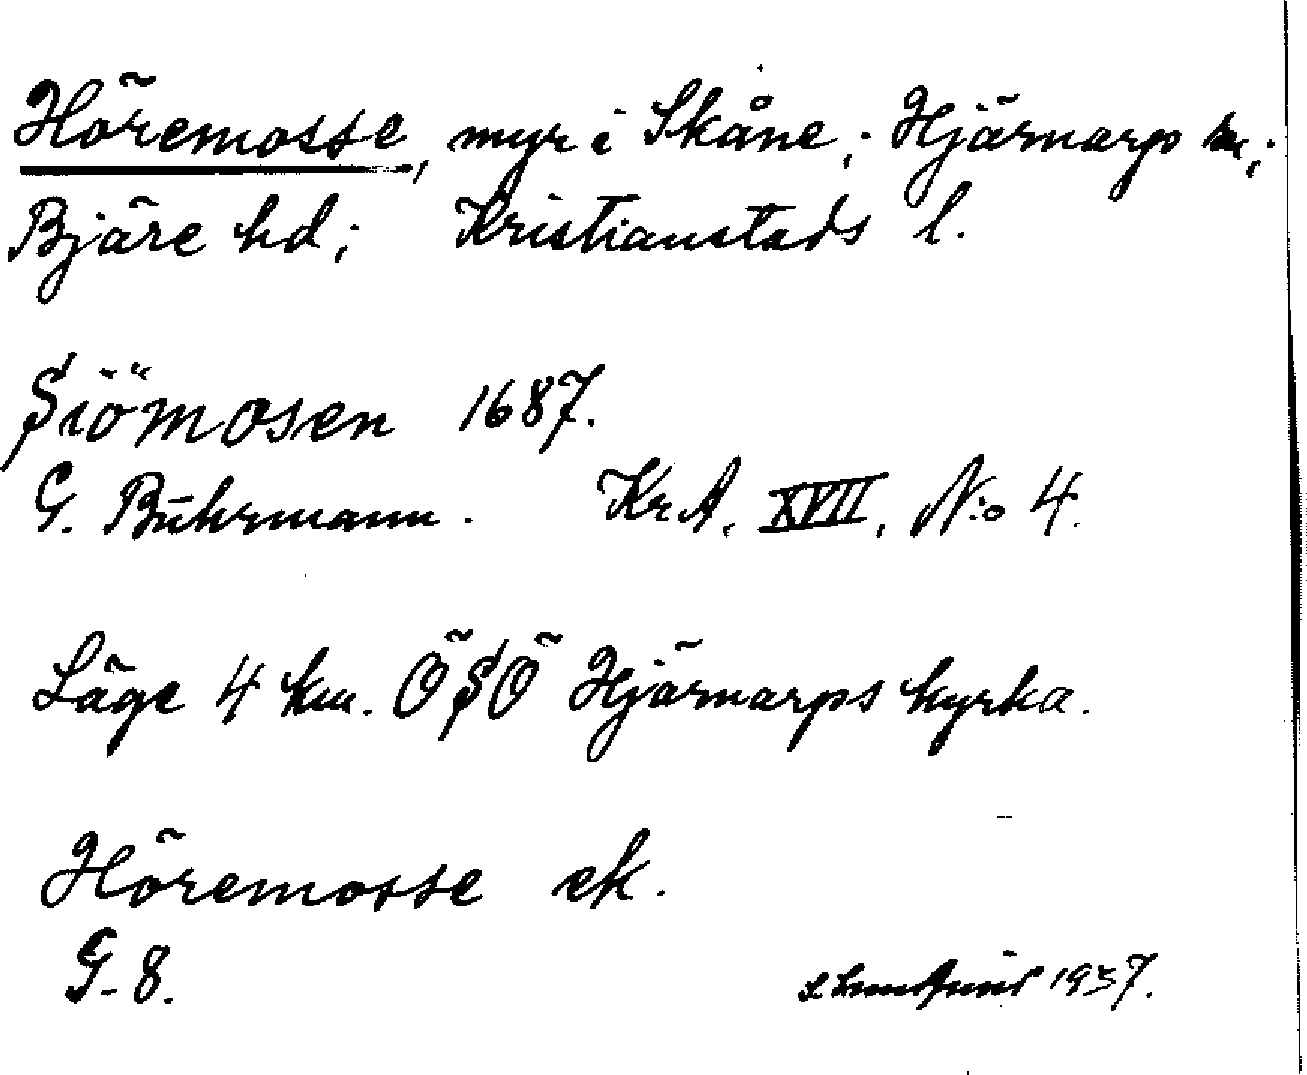 Höremosse, myr i Skåne; Hjärnarp sn;
Bjäre hd; Kristianstads l.
Siömosen 1687.
G. Buhrmann. KrA. XVII, N:o 4.
Läge 4 km. ÖSÖ Hjärnarps kyrka.
Höremosse ek.
G-8. 1937.